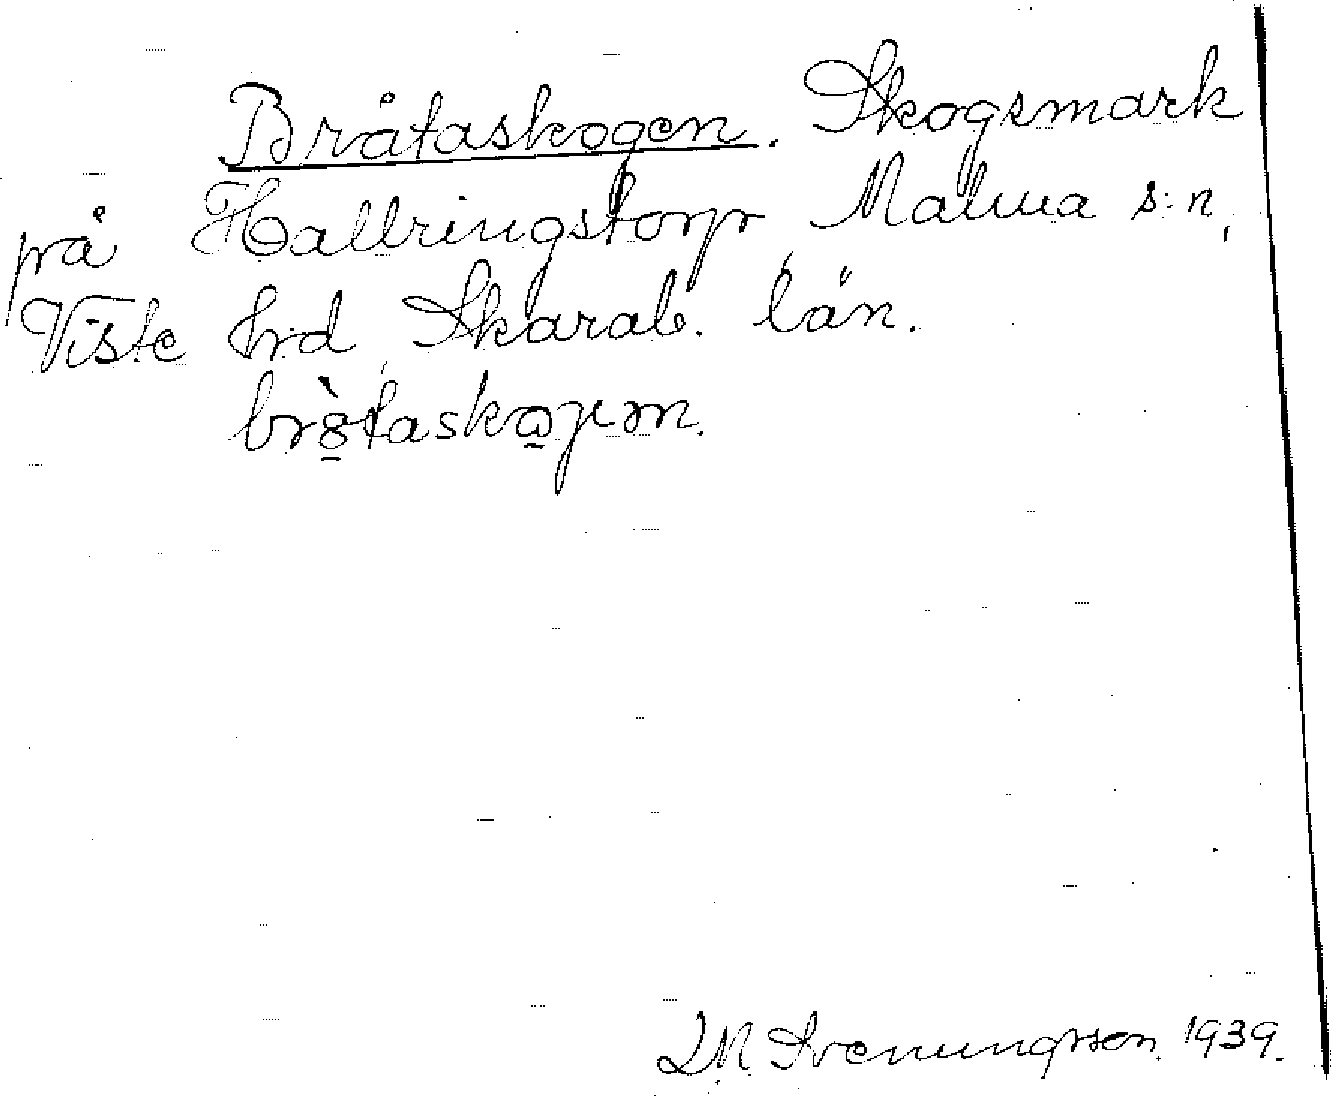 Bråtaskogen. Skogsmark
på Hallringstorp, Malma s:n,
Viste hrd, Skarab. län.
bròtaskogen.
D.N. Svenungsson 1939.